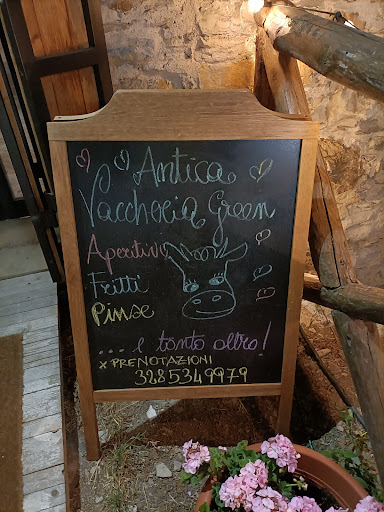 Antica
Vaccheria Green
Aperitivi
Fritti
Pinse
.... e tanto altro!
x PRENOTAZIONI
3285349979